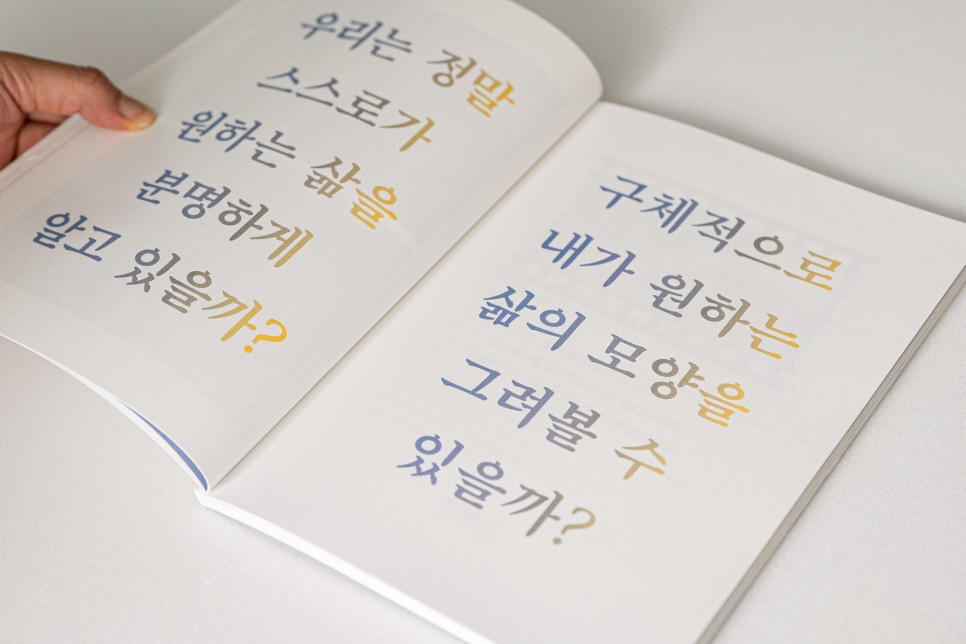 우리는 정말
스스로가
원하는 삶을
분명하게
알고 있을까?
구체적으로
내가 원하는
삶의 모양을
그려볼 수
있을까?